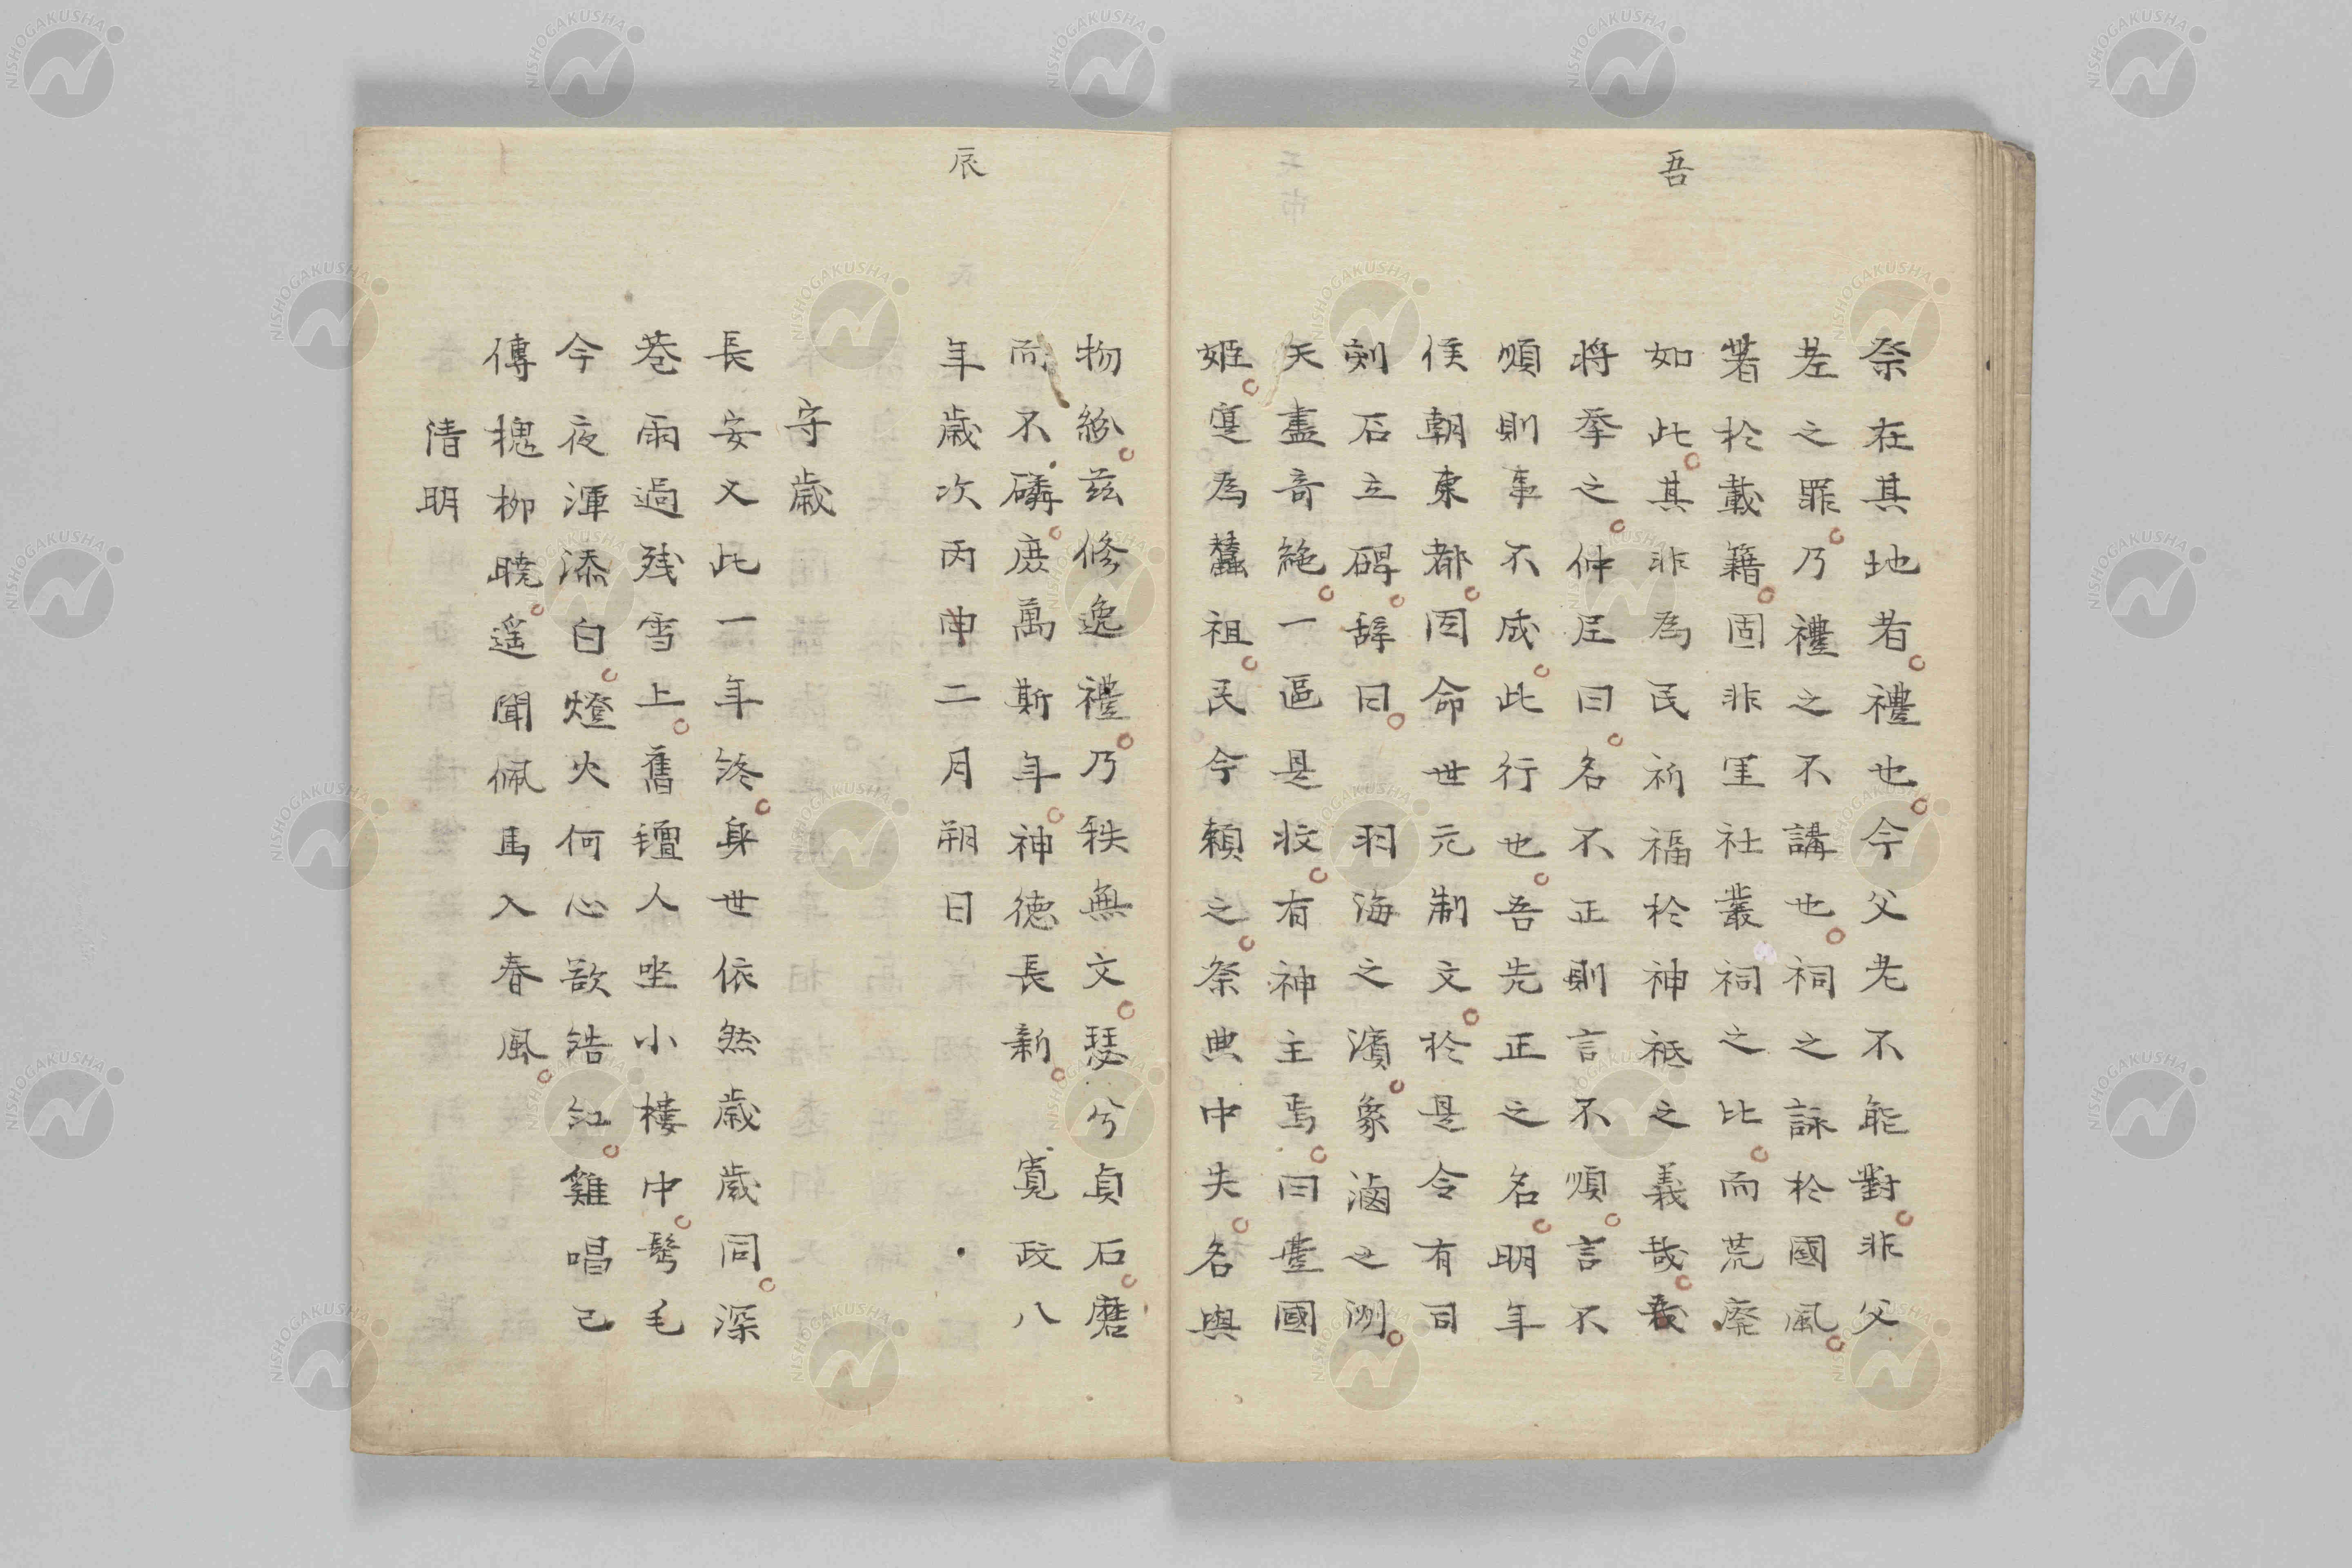 吾
祭在其地者禮也今父老不能對非父
老之罪乃禮之不講也祠之詠於國風
著於載籍固非里社叢祠之比而荒廃
如此其非為民祈福於神祇之義哉
将挙之仲尼曰名不正則言不順言不
順則事不成此行也吾先正之名明年
侯朝東都因命世元制文於是令有司
刻石立碑辞曰羽海之濱象潟之洲
天盡奇絶一區是收有神主焉曰豊國
姫寔為蠶祖民今頼之祭典中失名與
辰
物紛茲修逸禮乃秩無文瑟兮貞石磨
而不磷庶萬斯年神徳長新 寛政八
年歳次丙申二月朔日
守歳
長安又此一年終身世依然歳歳同深
巷雨過残雪上舊氊人坐小楼中髩毛
今夜渾添白燈火何心欲浩紅雞唱已
傳槐柳暁遥聞佩馬入春風
清明
NISHOGAKUSHA